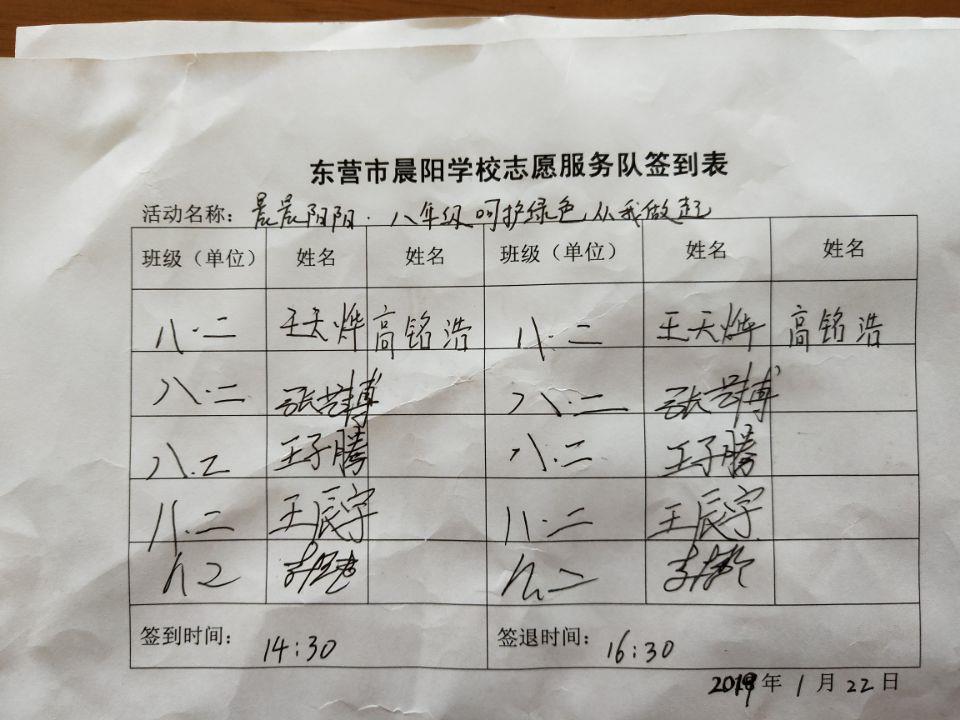 东营市晨阳学校志愿服务队签到表
活动名称：晨晨阳阳·八年级呵护绿色，从我做起
班级（单位） 姓名 姓名 班级（单位） 姓名 姓名
八·二 王天烨 高铭浩 八·二 王天烨 高铭浩
八·二 张艺博 八·二 张艺博
八.2 王子腾 八.二 王子腾
八.二 王辰宇 八.二 王辰宇
八2 八二
签到时间：14:30 签退时间：16:30
2019年1月22日